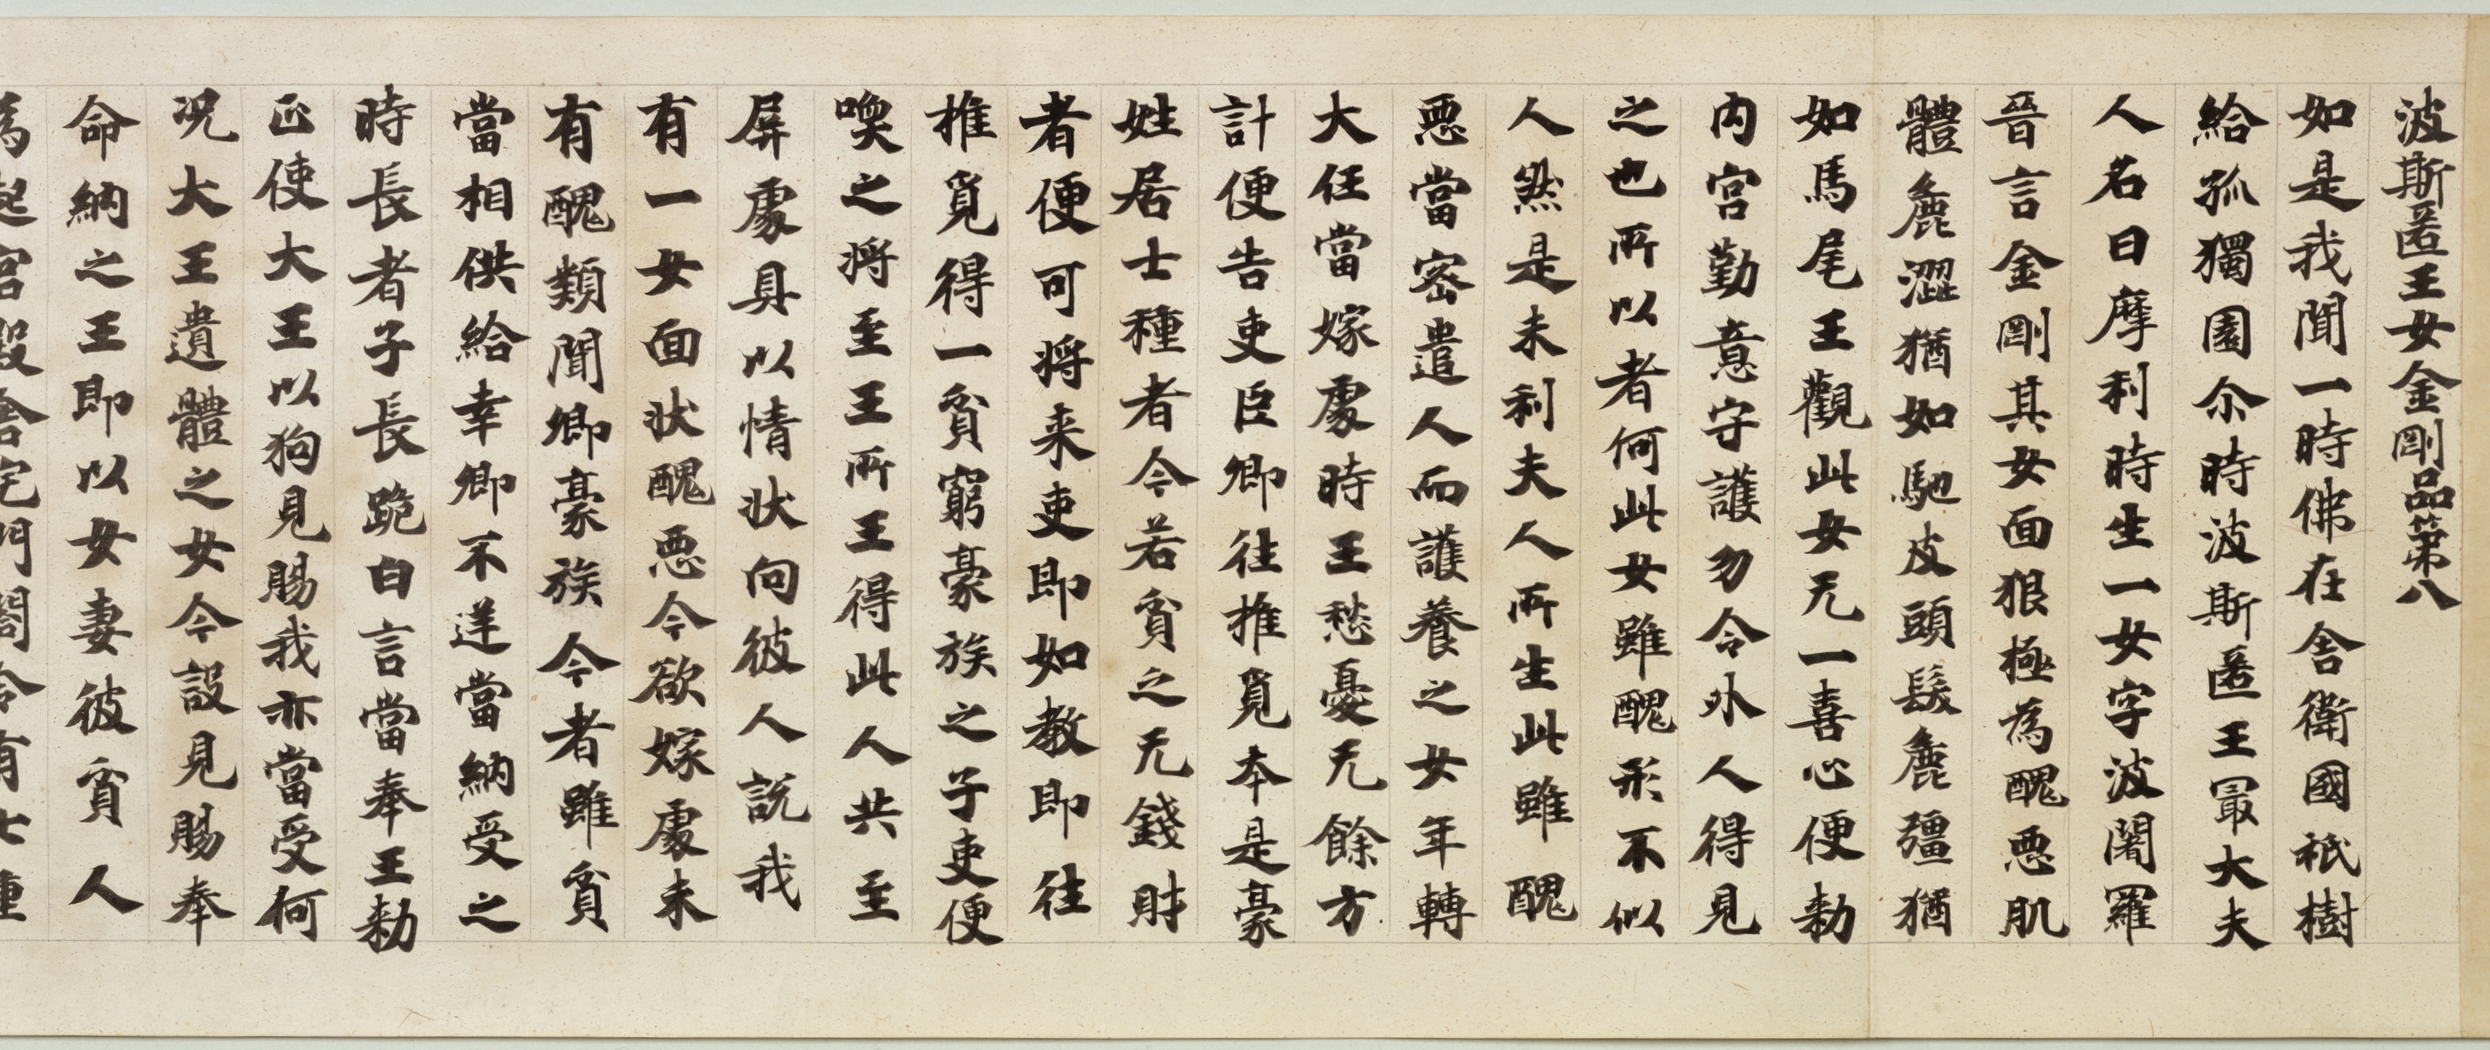 波斯匿王女金剛品第八
如是我聞一時佛在舍衛國祇樹
給孤獨園尒時波斯匿王冣大夫
人名曰摩利時生一女字波闍羅
晉言金剛其女面狠極為醜惡肌
體麁澀猶如駞皮頭髮麁彊猶
如馬尾王觀此女无一喜心便勑
内宮勤意守護勿令外人得見
之也所以者何此女雖醜形不似
人然是末利夫人所生此雖醜
惡當密遣人而護養之女年轉
大任當嫁處時王愁憂无餘方
計便告吏臣卿往推覓本是豪
姓居士種者今若貧之无錢財
者便可將来吏即如教即往
推覓得一貧窮豪族之子吏便
喚之將至王所王得此人共至
屏處具以情狀向彼人說我
有一女面狀醜惡今欲嫁處未
有醜類聞卿豪族今者雖貧
當相供給幸卿不逆當納受之
時長者子長跪白言當奉王勑
正使大王以狗見賜我亦當受何
況大王遺體之女今設見賜奉
命納之王即以女妻彼貧人
為起宮殿舍宅門閤令有七重